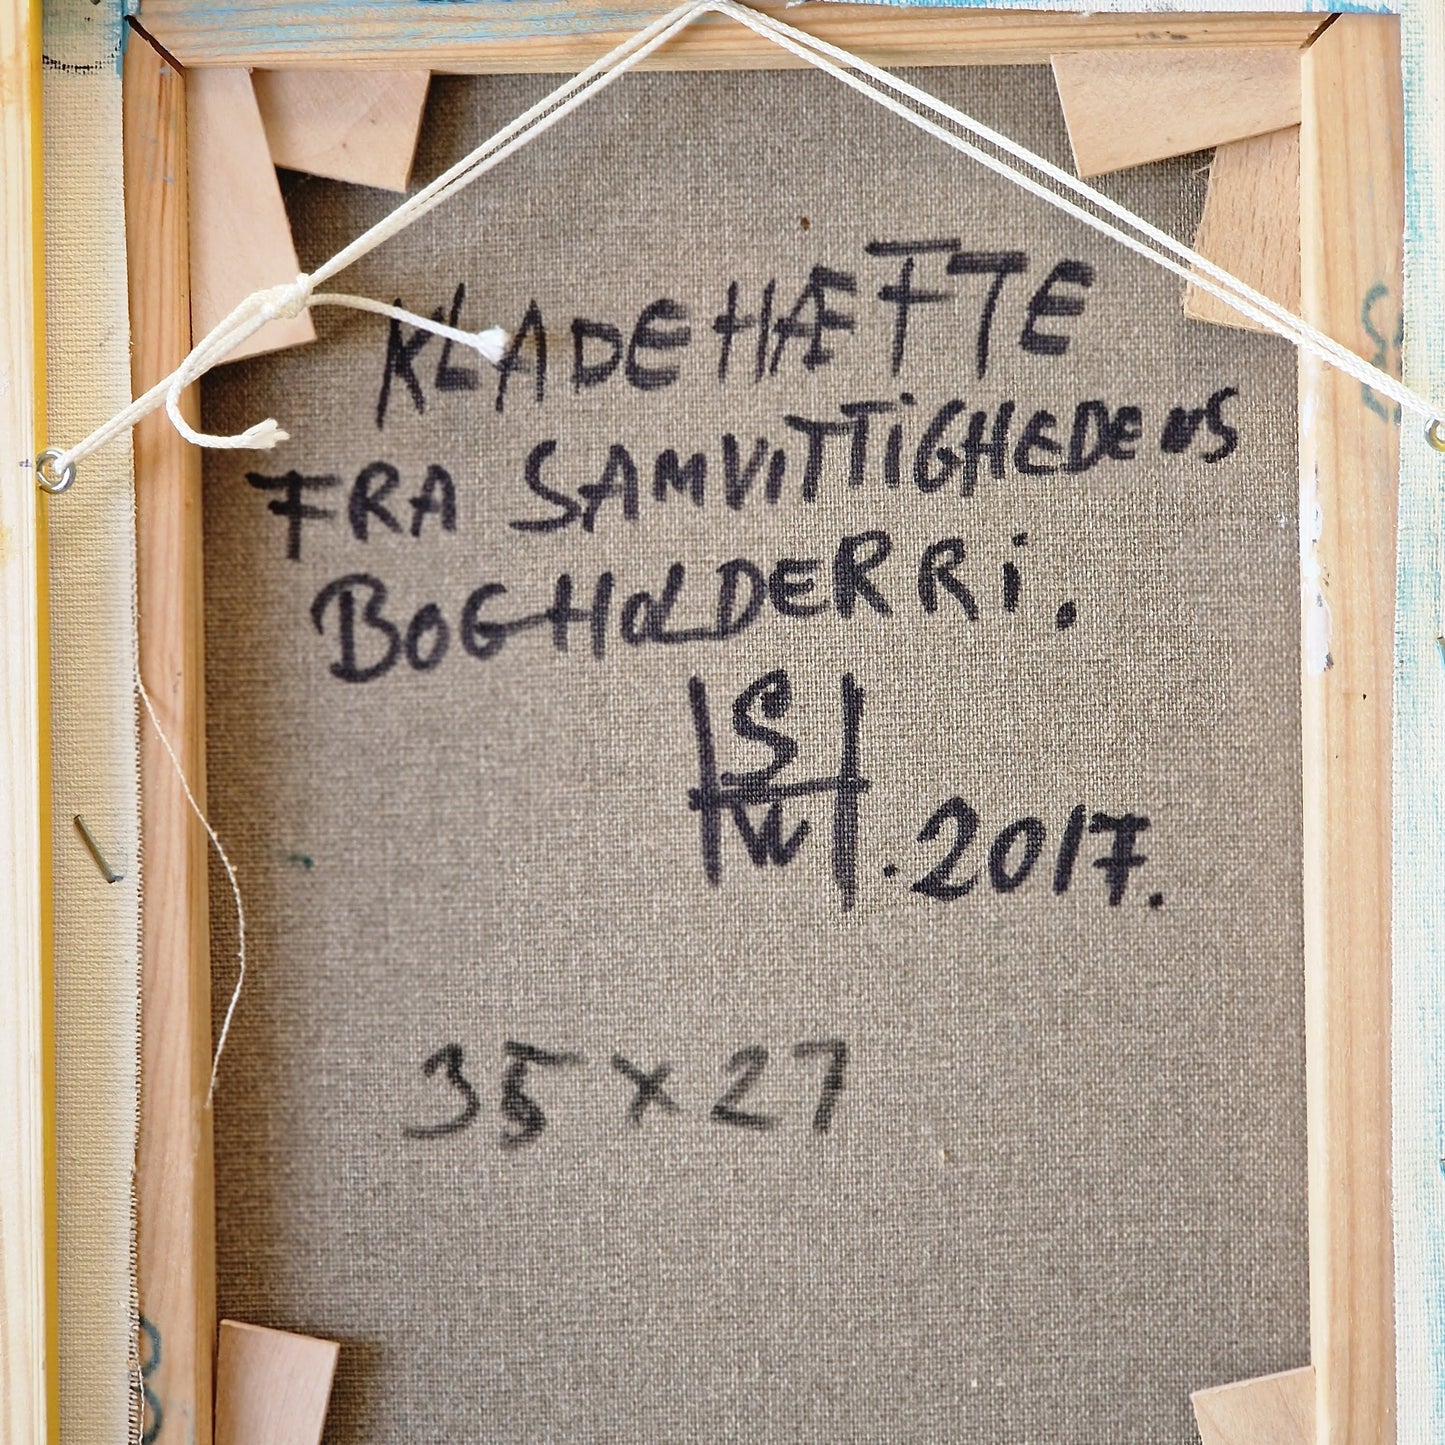 KLADEHÆFTE
FRA SAMVITTIGHEDENS
BOGHOLDERRi.
.2017.
35 x 27